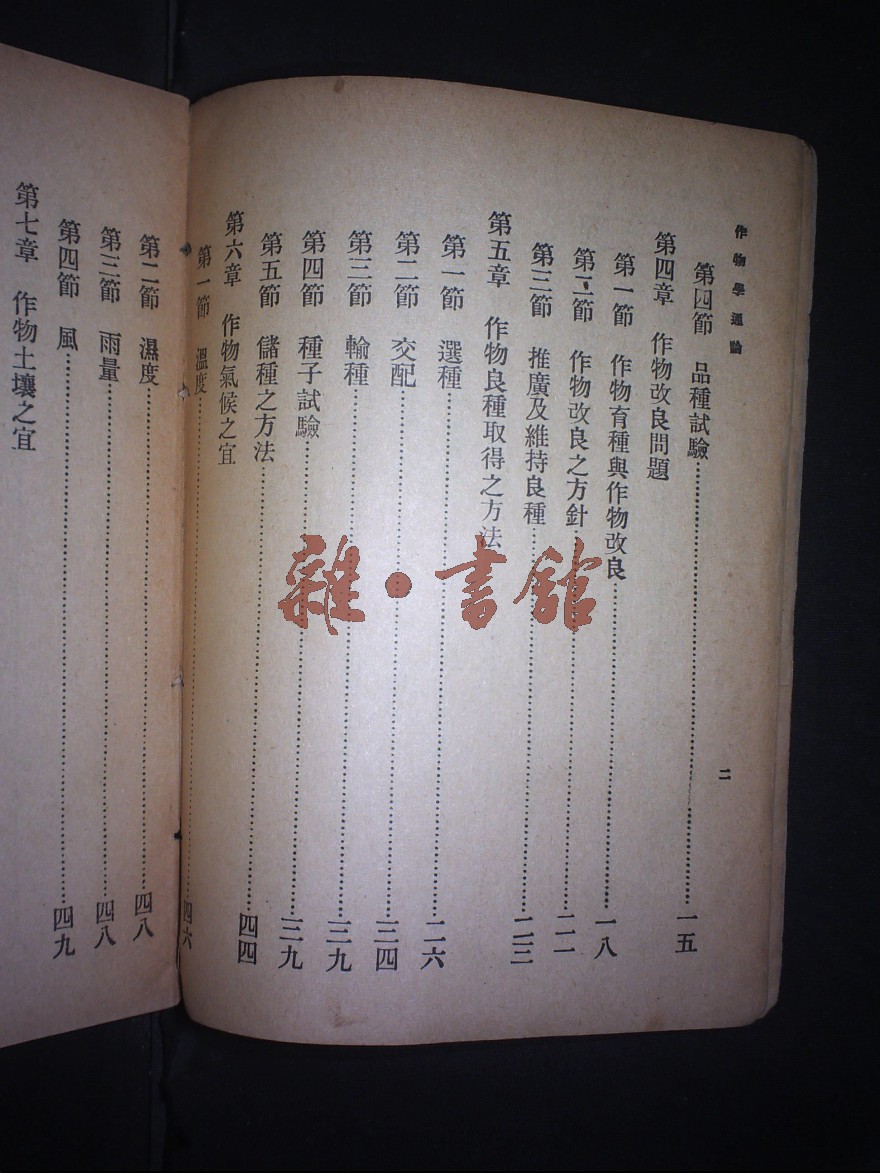 作物學通論
二
第四節 品種試驗……一五
第四章 作物改良問題
第一節 作物育種與作物改良……一八
第二節 作物改良之方針……二一
第三節 推廣及維持良種……二三
第五章 作物良種取得之方法
第一節 選種……二六
第二節 交配……三四
第三節 輸種……三九
第四節 種子試驗……三九
第五節 儲種之方法……四四
第六章 作物氣候之宜
第一節 溫度……四六
第二節 濕度……四八
第三節 雨量……四八
第四節 風……四九
第七章 作物土壤之宜
雜·書館